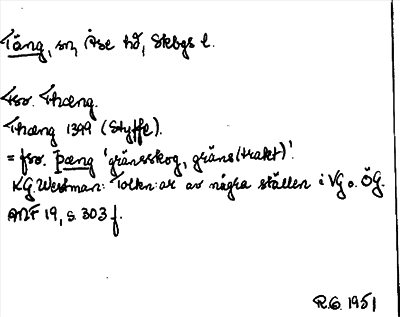 Täng, sn, Åse hd, Skbgs l.
Fsv. Thæng.
Thæng 1399 (Styffe).
= fsv. þæng 'gränsskog, gräns(trakt)'.
K.G. Westman: Tolkn:ar av några ställen i VG o. ÖG.
ANF 19, s. 303 f.
R.G. 1951